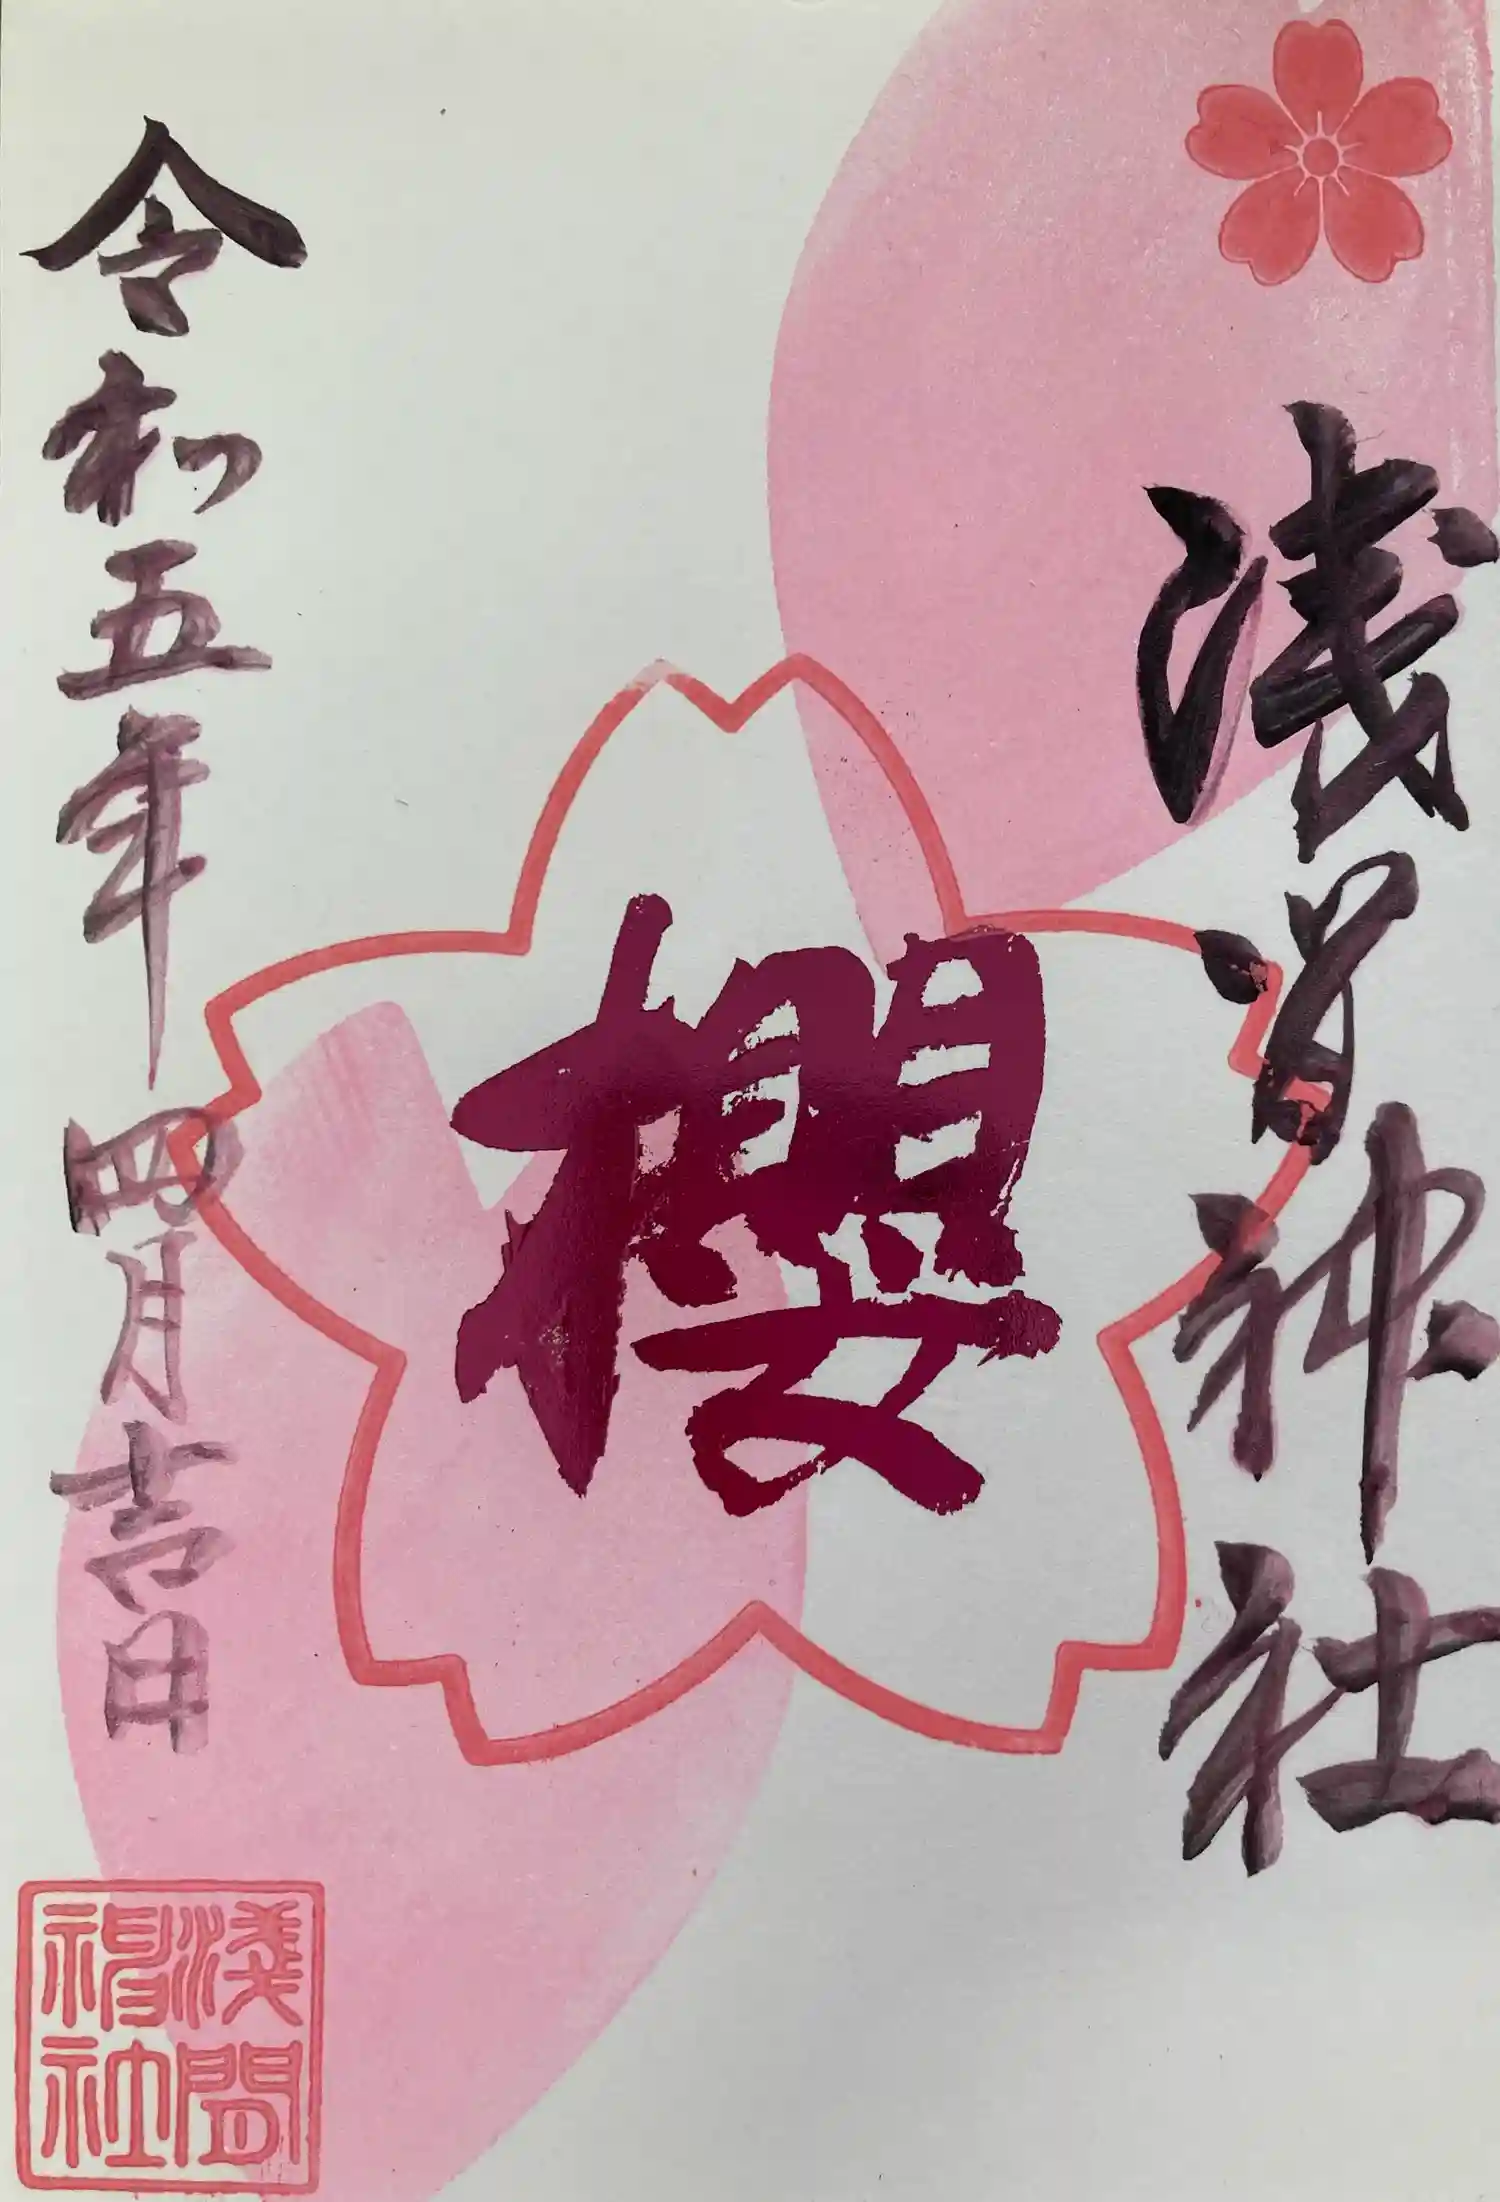 浅間神社
櫻
令和五年四月吉日
淺間
神社